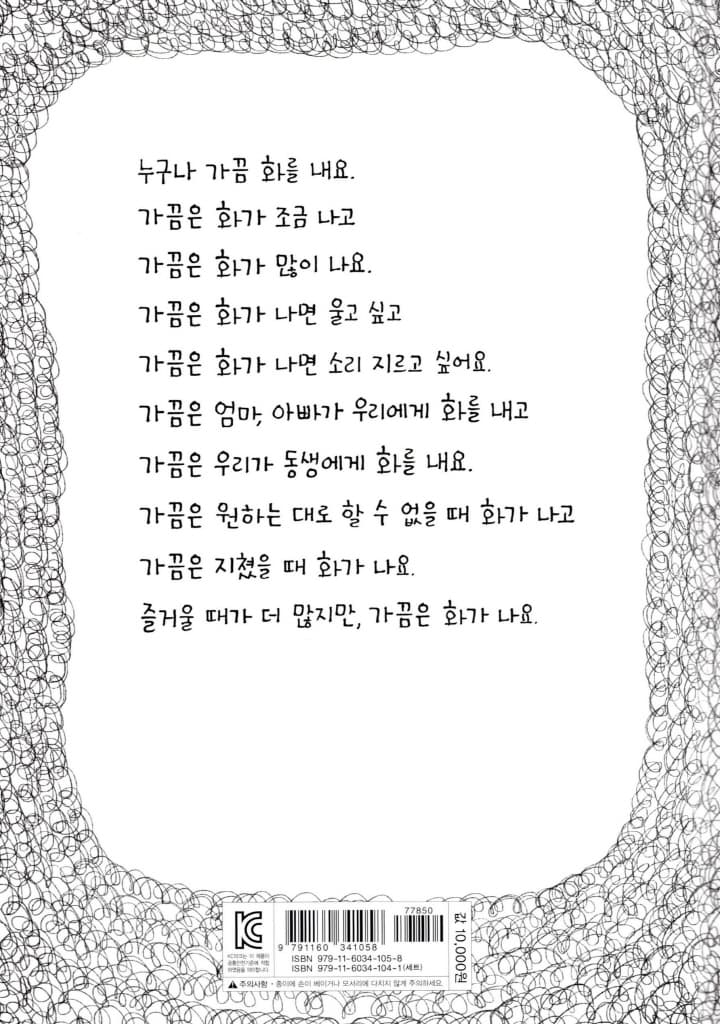 누구나 가끔 화를 내요.
가끔은 화가 조금 나고
가끔은 화가 많이 나요.
가끔은 화가 나면 울고 싶고
가끔은 화가 나면 소리 지르고 싶어요.
가끔은 엄마, 아빠가 우리에게 화를 내고
가끔은 우리가 동생에게 화를 내요.
가끔은 원하는 대로 할 수 없을 때 화가 나고
가끔은 지쳤을 때 화가 나요.
즐거울 때가 더 많지만, 가끔은 화가 나요.
KC
KC마크는 이 제품이
공통안전기준에 적합
하였음을 의미합니다.
77850
9 791160 341058
ISBN 979-11-6034-105-8
ISBN 979-11-6034-104-1(세트)
값 10,000원
⚠ 주의사항 • 종이에 손이 베이거나 모서리에 다치지 않게 주의하세요.